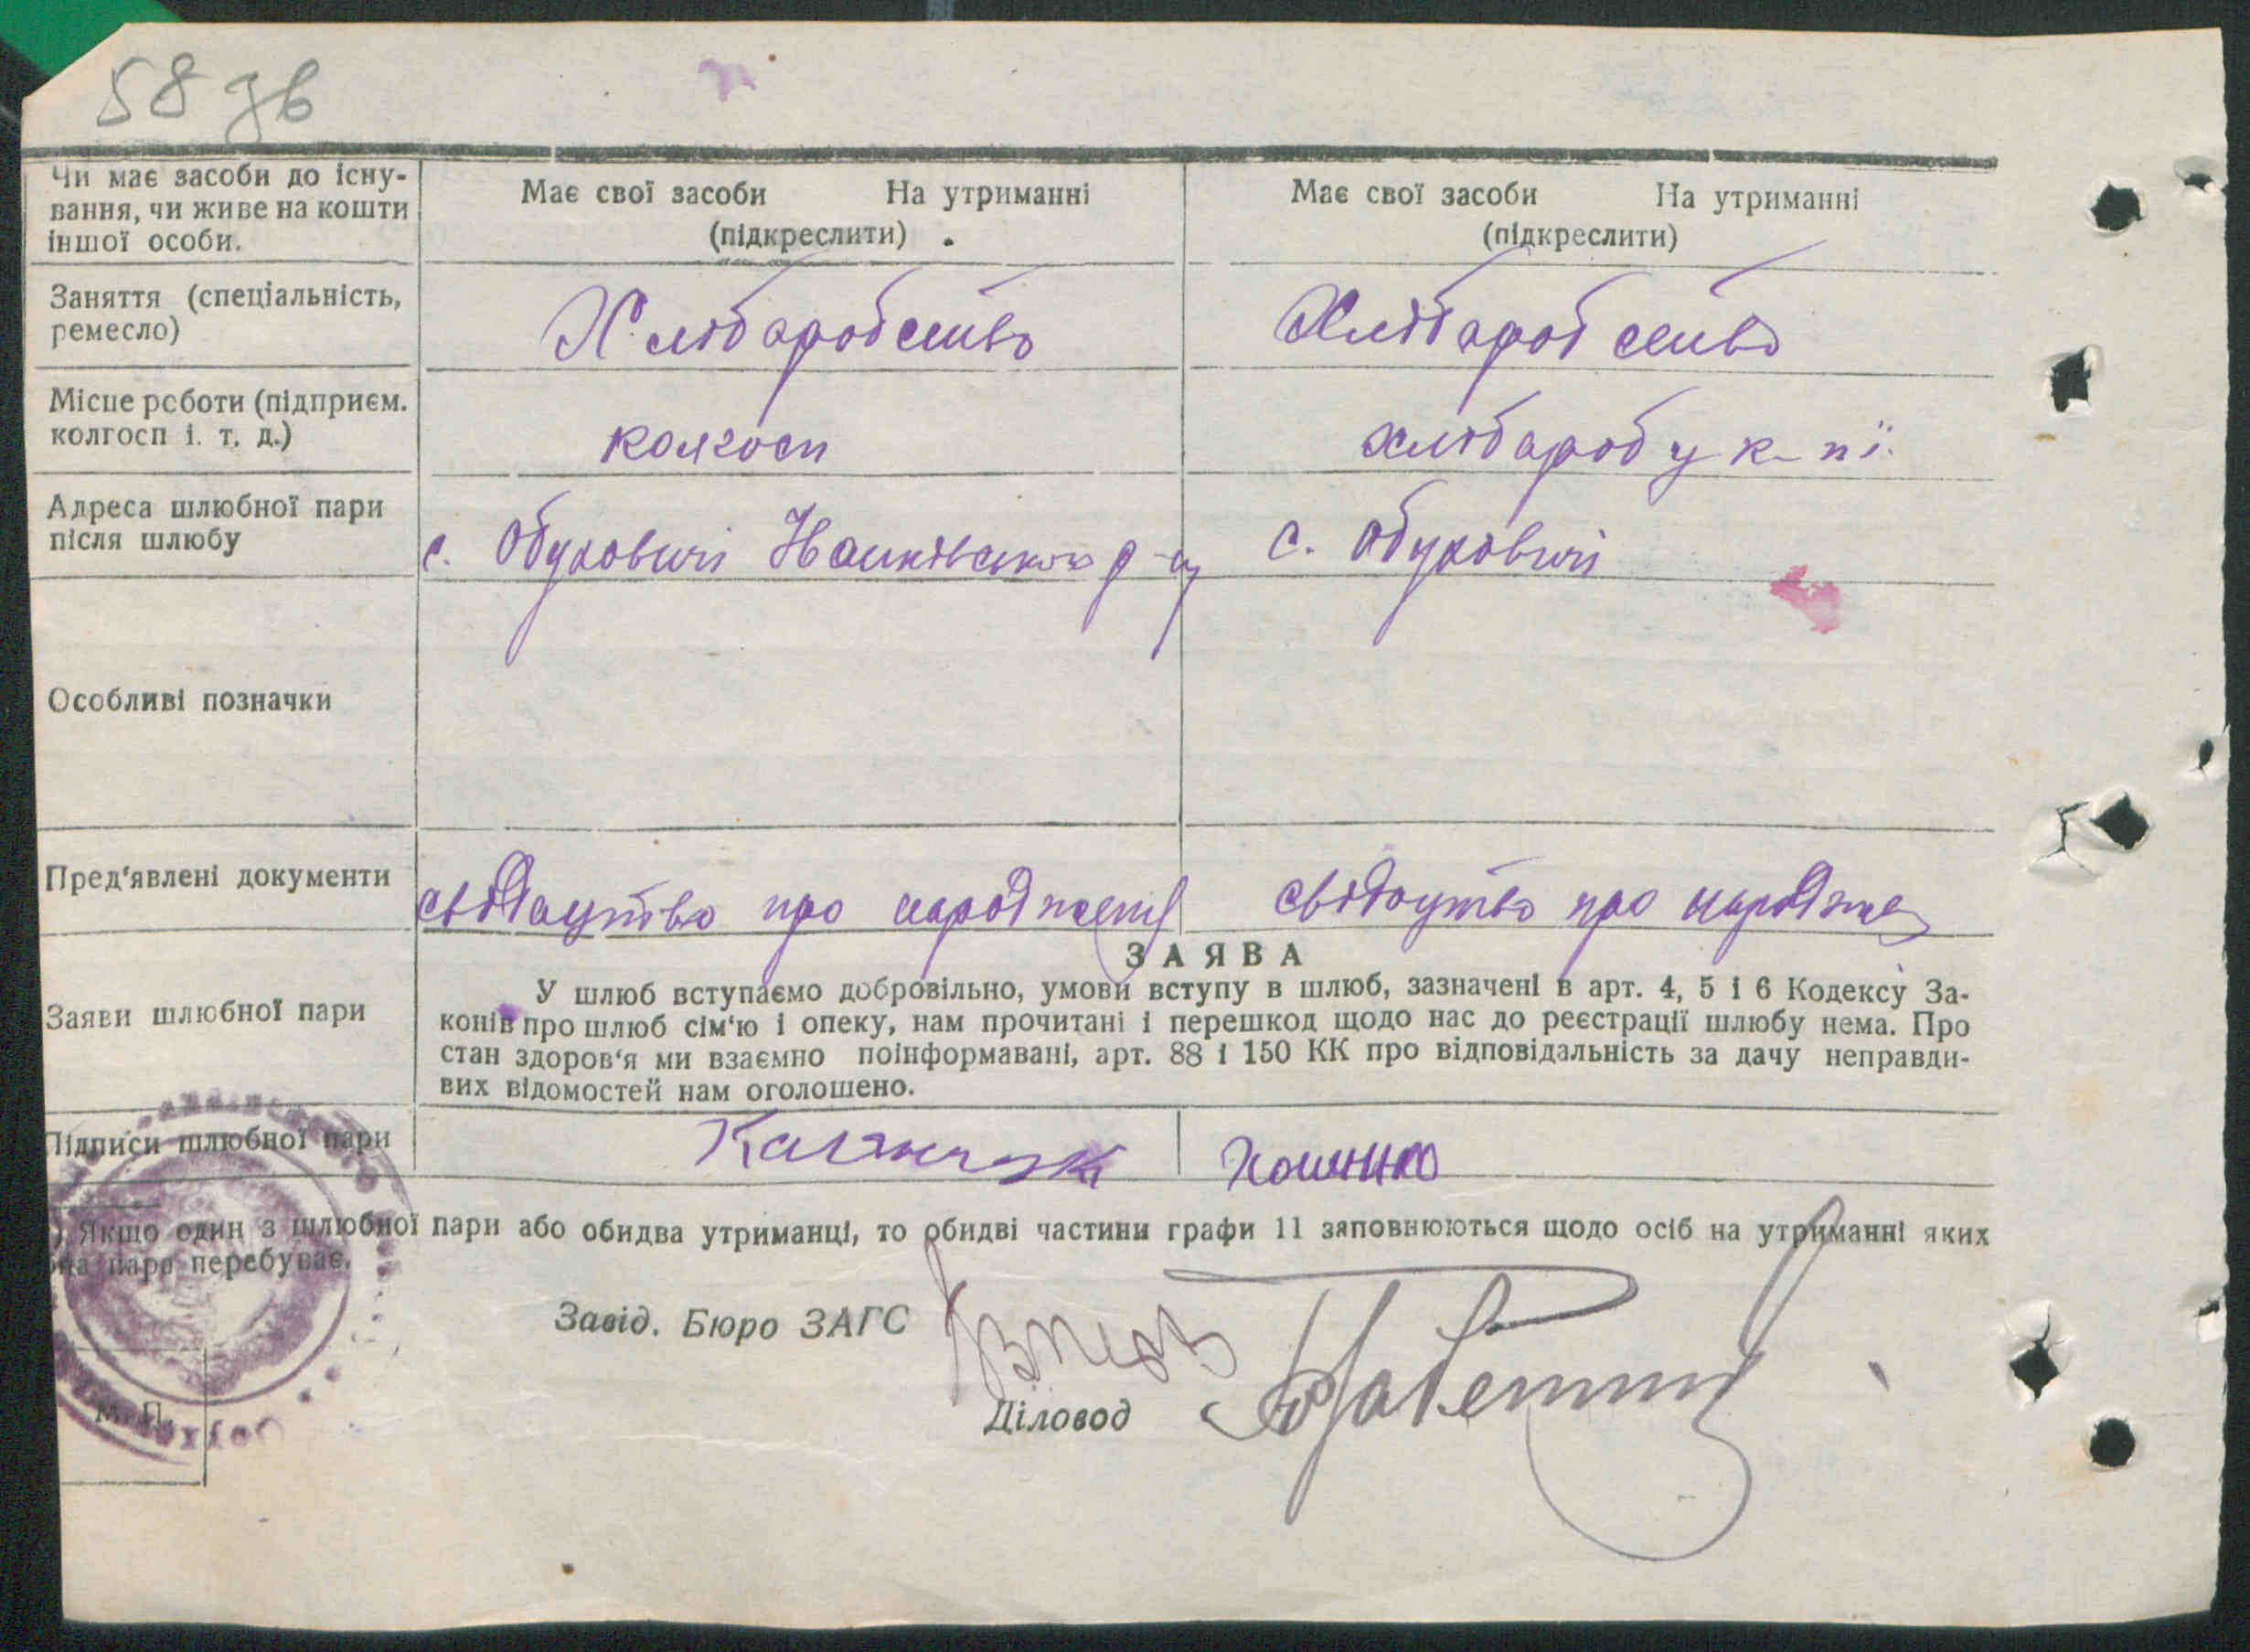 58 зв
Чи має засоби до існу-
вання, чи живе на кошти
іншої особи.
Має свої засоби На утриманні
(підкреслити)
Має свої засоби На утриманні
(підкреслити)
Заняття (спеціальність,
ремесло)
Хлібаробство
Хлібаробство
Місце роботи (підприєм.
колгосп і. т. д.)
колгосп
хлібароб у к-пі.
Адреса шлюбної пари
після шлюбу
с. Обуховичі Іванківського р-ну
с. Обуховичі
Особливі позначки
Пред'явлені документи
свідоцтво про народження
свідоцтво про народжен
ЗАЯВА
Заяви шлюбної пари
У шлюб вступаємо добровільно, умови вступу в шлюб, зазначені в арт. 4, 5 і 6 Кодексу За-
конів про шлюб сім'ю і опеку, нам прочитані і перешкод щодо нас до реєстрації шлюбу нема. Про
стан здоров'я ми взаємно поінформавані, арт. 88 і 150 КК про відповідальність за дачу неправди-
вих відомостей нам оголошено.
Підписи шлюбної пари
) Якщо один з шлюбної пари або обидва утриманці, то обидві частини графи 11 заповнюються щодо осіб на утриманні яких
она пара перебуває.
Завід. Бюро ЗАГС
Діловод
М. П.